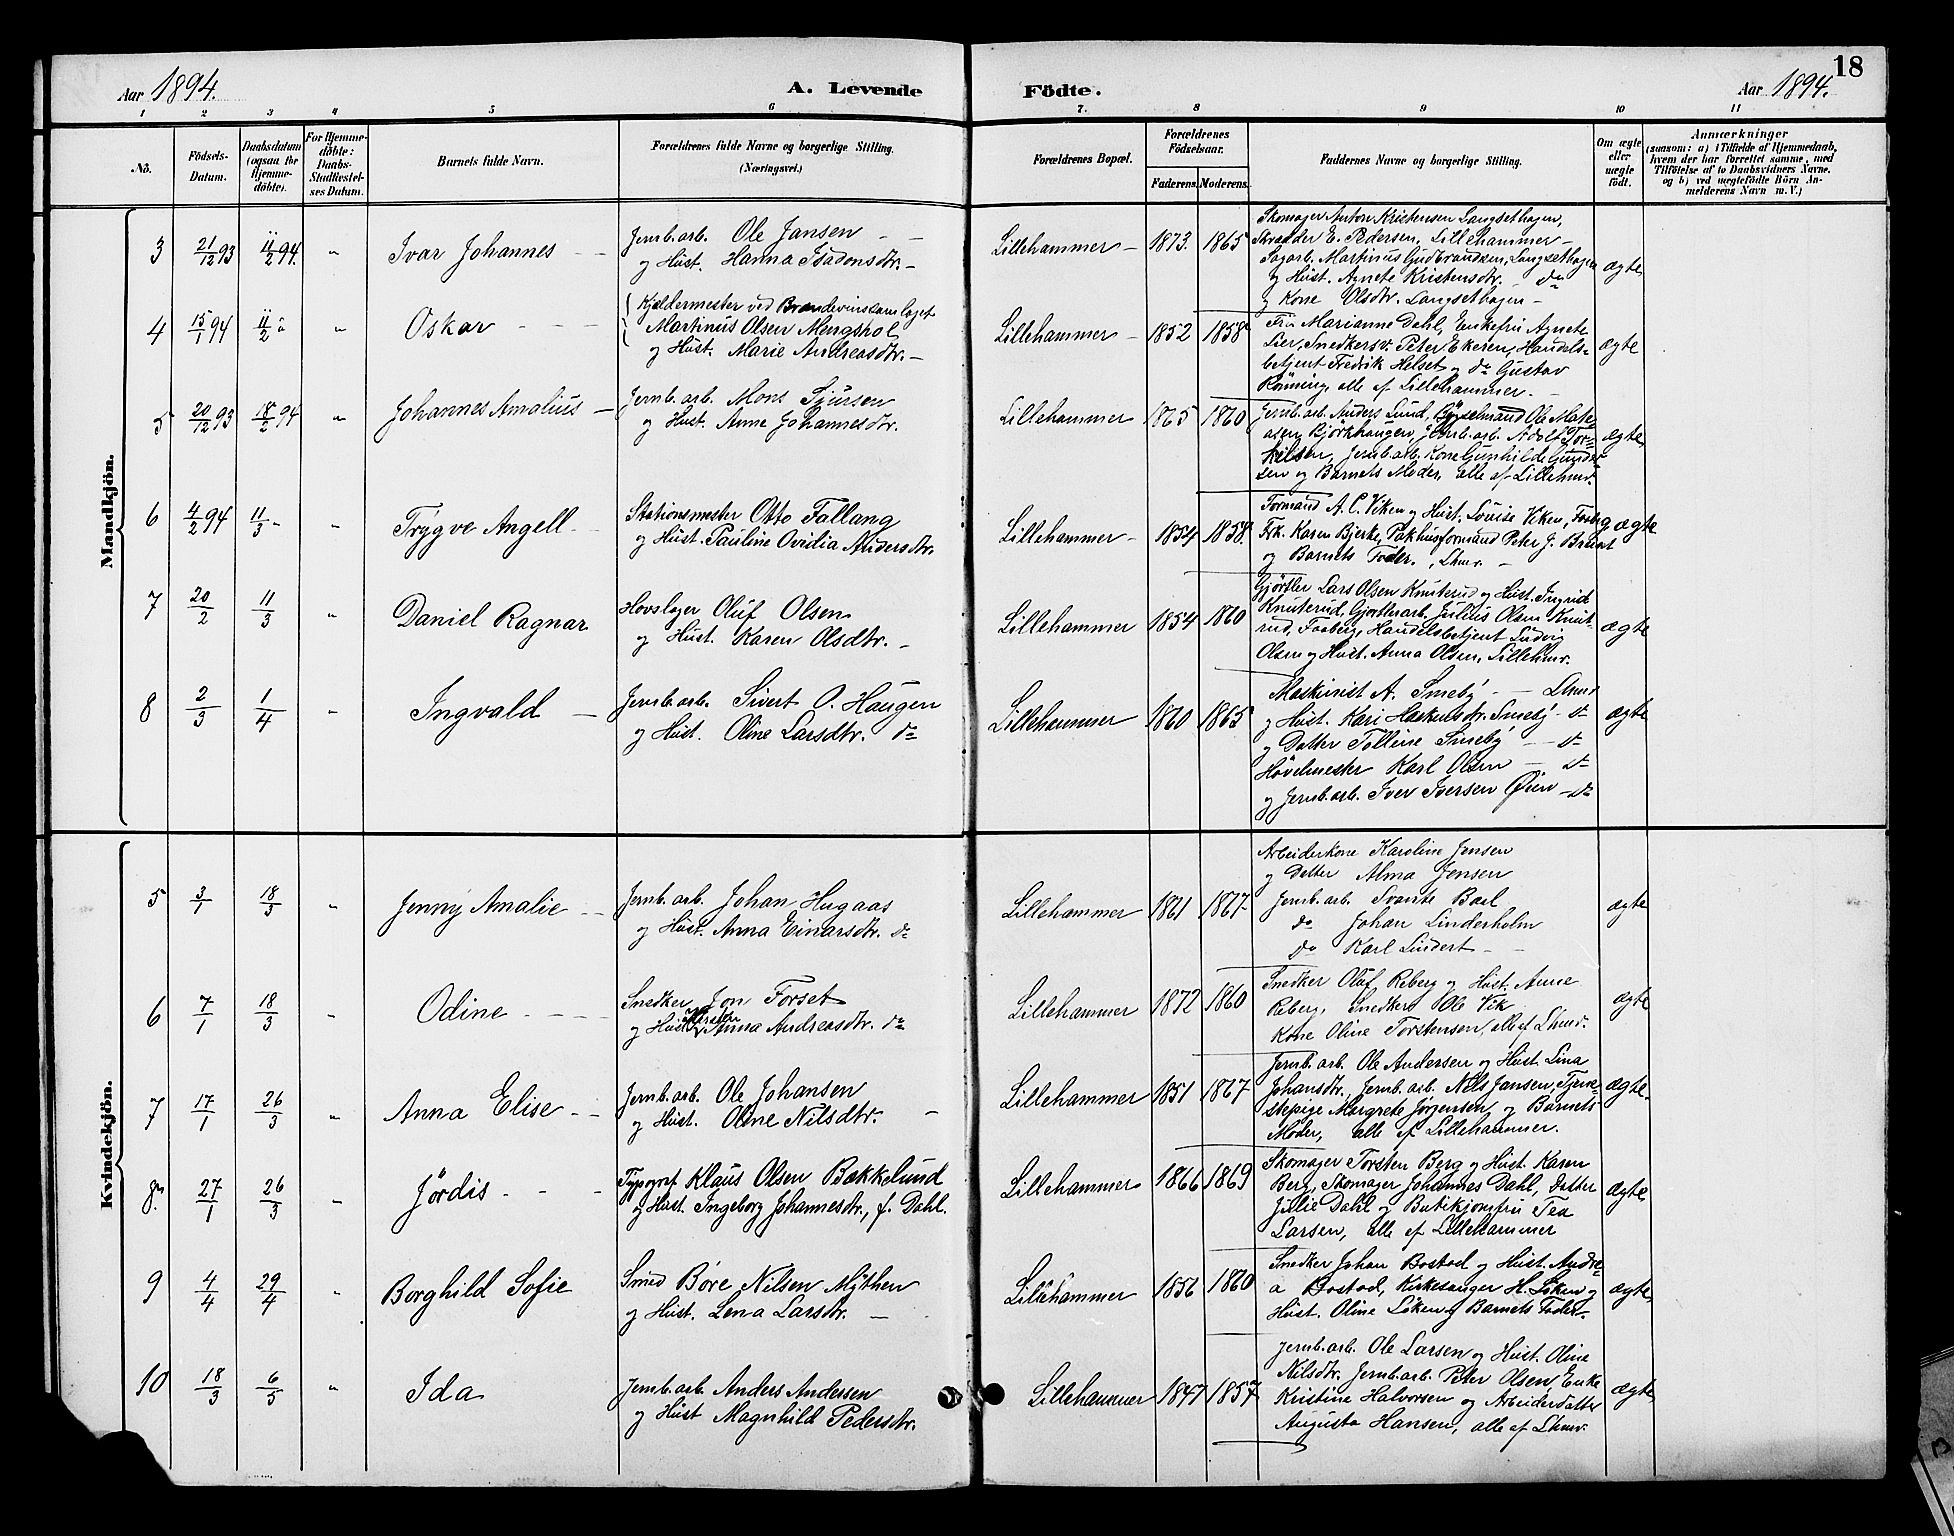 18
Aar 1894. A. Levende Födte. Aar 1894.
1 2 3 4 5 6 7. 8 9 10 11
No. Födsels-Datum. Daabsdatum (ogsaa for Hjemme-döbte). For Hjemme-döbte: Daabs-Stadfæstel-ses Datum. Barnets fulde Navn. Forældrenes fulde Navne og borgerlige Stilling. (Næringsvei.) Forældrenes Bopæl. Forældrenes Födselsaar. Faderens. Moderens. Faddernes Navne og borgerlige Stilling. Om ægte eller uægte födt. Anmærkninger (saasom: a) i Tilfælde af Hjemmedaab, hvem der har forrettet samme, med Tilföielse af to Daabsvidners Navne. og b) ved uægtefödte Börn An-melderens Navn m. V.)
Mandkjön.
3 21/12 93 11/2 94. " Ivar Johannes - -
Jernb. arb. Ole Jansen - -
og Hust. Hanna
Lillehammer - 1873. 1865
Skomager Anton Kristensen Langsethagen,
Skrædder E. Pedersen, Lillehammer -
Sagarb. Martinus Gudbrandsen, Langsethagen
og Hust. Agnete Kristensdtr. do
og Kone Olsdtr. Langsethagen -
ægte
4 15/1 94 11/2 " " Oskar - - -
Kjeldermester ved Brændevinssamlaget
Martinus Olsen Mengshol
og Hust. Marie Andreasdtr. -
Lillehammer - 1852 1858
Fru Marianne Dahl, Enkefru Agnete
Lier, Snedkersv. Peter Ekeren, Handels-
betjent Fredrik Helset og do Gustav
Rönning, alle af Lillehammer. -
ægte
5 20/12 93 18/2 94 " Johannes Amalius -
Jernb. arb. Mons Sjursen
og Hust. Anne Johannesdtr.
Lillehammer 1865 1860
Jernb. arb. Anders Lund, Ole Mats
Björkhaugen, Jernb. arb. Adolf Tor-
kelsen, Jernb. arb. Kone Gunhilde Gunder-
sen og Barnets Moder, alle af Lillehmr.
ægte
6 4/2 94 11/3 - " Trygve Angell -
Stationsmester Otto Fallang
og Hust. Pauline Ovidia Andersdtr.
Lillehammer - 1854 1858.
Formand A. C. Viken og Hust. Louise Viken, Faaberg
Frk. Karen Bjerke, Pakhusformand Peter J. Bruat
og Barnets Fader. , Lhmr. -
ægte
7 20/2 11/3 " Daniel Ragnar
Hovslager Oluf Olsen
og Hust. Karen Olsdtr. -
Lillehammer 1854 1860
Gjörtler Lars Olsen Knuterud og Hust. Ingrid
Knuterud, Gjörtlerarb. Julius Olsen Knut-
rud, Faaberg, Handelsbetjent Ludvig
Olsen og Hust. Anna Olsen, Lillehmr.
ægte
8 2/3 1/4 " Ingvald -
Jernb. arb. Sivert O. Haugen
og Hust. Oline Larsdtr. do
Lillehammer 1860 1865
Maskinist A. Smeby - - Lhmr
og Hust. Kari Smeby - do
og Datter Tolline Smeby - - do
Hövelmester Karl Olsen - do
og Jernb. arb. Iver Iversen Öien - do
ægte
Kvindekjön.
5 3/1 18/3 " Jenny Amalie - -
Jernb. arb. Johan Hugaas
og Hust. Anna Einarsdtr. do
Lillehammer 1861 1867
Arbeiderkone Karoline Jensen
og Datter Alma Jensen
Jernb. arb. Svante Boel
do Johan Linderholm
do Karl Lindert - -
ægte
6 7/1 18/3 " Odine - - - -
Snedker Jon Forset
og Hust. Anna Andreasdtr. do
Lillehammer 1872 1860
Snedker Oluf Reberg og Hust. Anne
Reberg, Snedker Ole Vik
Kone Oline Torstensen, alle af Lhmr.
ægte
7 17/1 26/3 " Anna Elise - -
Jernb. arb. Ole Johansen
og Hust. Oline Nilsdtr. -
Lillehammer 1851 1867
Jernb. arb. Ole Andersen og Hust. Lina
Johansdtr. Jernb. arb. Nils Jansen, Tjene-
stepige Margrete Jörgensen og Barnets
Moder, alle af Lillehammer.
ægte.
8. 27/1 26/3 " Jördis - - -
Typograf Klaus Olsen Bækkelund
og Hust. Ingeborg Johannesdtr., f. Dahl.
Lillehammer 1866 1869
Skomager Torsten Berg og Hust. Karen
Berg, Skomager Johannes Dahl, Datter
Julie Dahl og Butikjomfru Tea
Larsen, alle af Lillehammer
ægte
9 4/4 29/4 " Borghild Sofie
Smed Böre Nilsen Mythen
og Hust. Lena Larsdtr. -
Lillehammer 1856 1860
Snedker Johan Bostad og Hust. Andre-
a Bostad, Kirkesanger H. Löken og
Hust. Oline Löken og Barnets Fader.
ægte,
10 18/3 6/5 " Ida
Jernb. arb. Anders Andersen
og Hust Magnhild Pedersdtr.
Lillehammer 1847 1857
Jernb. arb. Ole Larsen og Hust. Oline
Nilsdtr. Jernb. arb. Peter Olsen Enke
Kristine Halvorsen og Arbeiderdatter
Augusta Hansen, alle af Lhmr.
ægte,